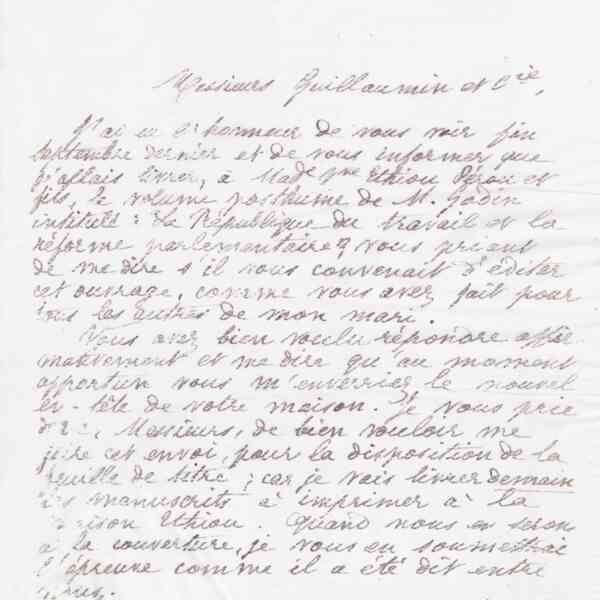 Messieurs Guillaumin et Cie,
J'ai eu l'honneur de vous voir fin
septembre dernier et de vous informer que
j'allais livrer, à Made Vve Ethiou Pérou et
fils, le volume posthume de M. Godin
intitulé : "La République du travail et la
réforme parlementaire", vous priant
de me dire s'il vous convenait d'éditer
cet ouvrage, comme vous avez fait pour
tous les autres de mon mari.
Vous avez bien voulu répondre affir-
mativement et me dire qu'au moment
opportun vous m'enverriez le nouvel
en-tête de votre maison. Je vous prie
donc, Messieurs, de bien vouloir me
faire cet envoi, pour la disposition de la
feuille de titre ; car je vais livrer demain
les manuscrits à imprimer à la
maison Ethiou. Quand nous en serons
à la couverture, je vous en soumettrai
l'épreuve comme il a été dit entre
nous.